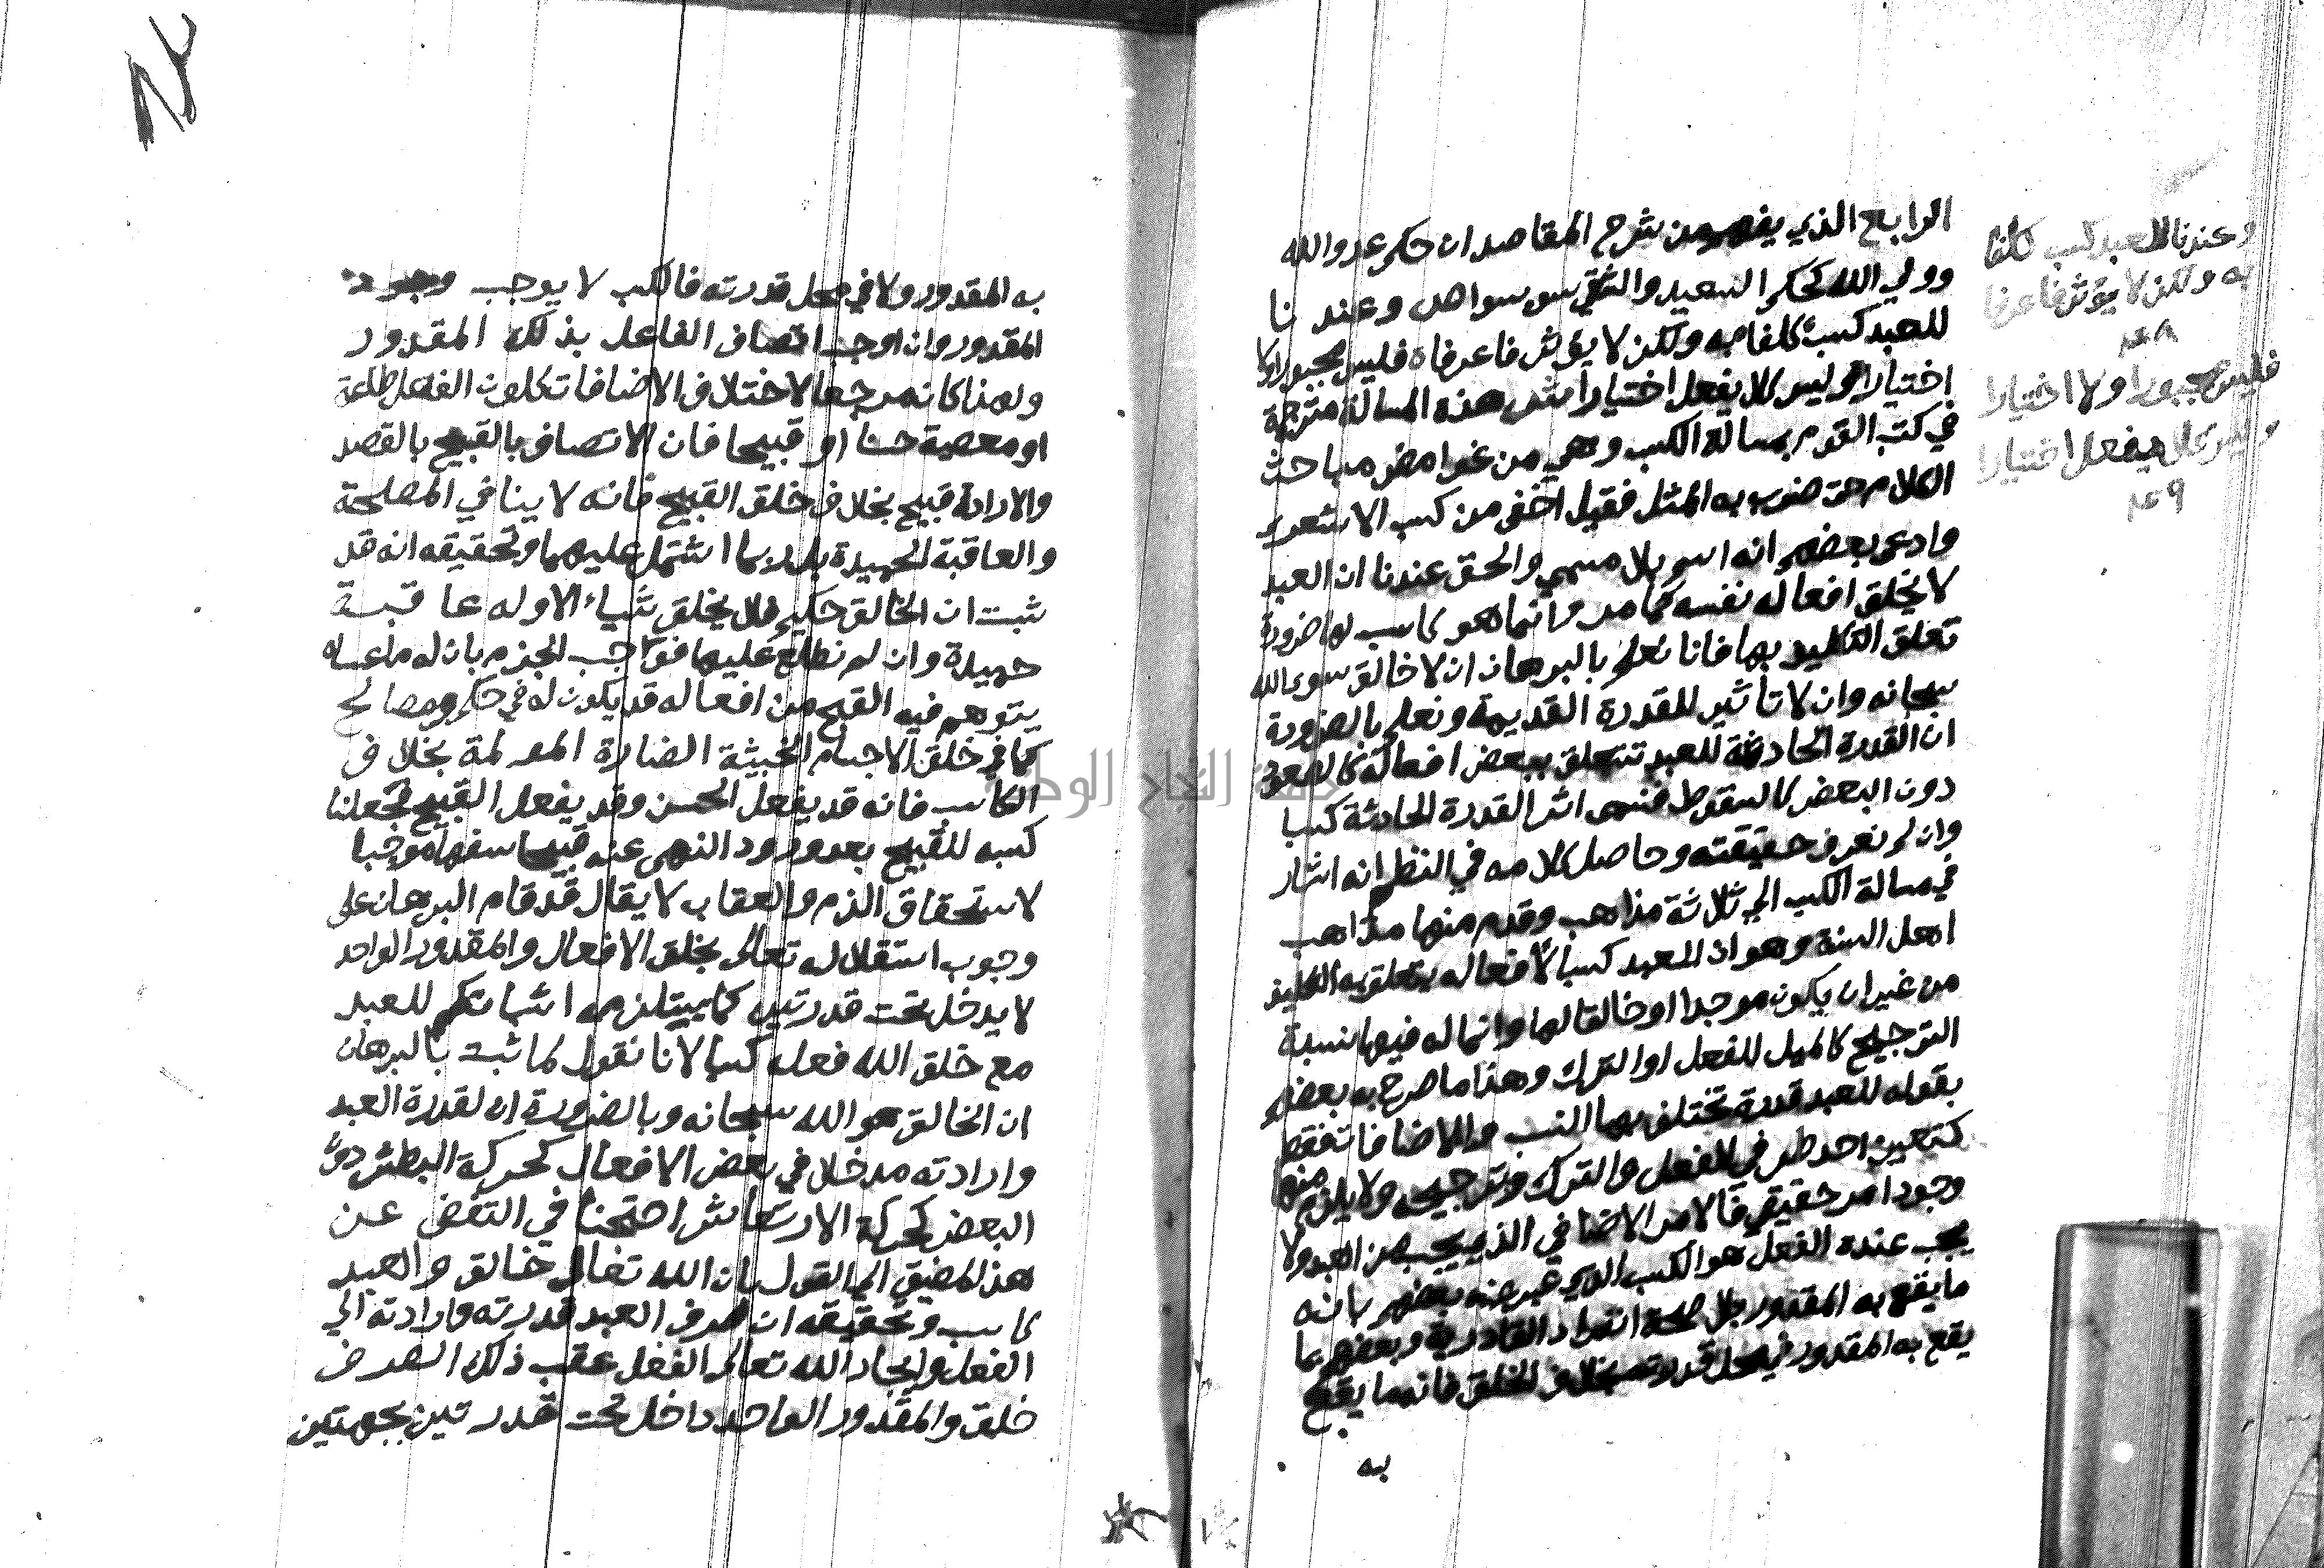 الرابع الذي يفهم من شرح المقاصد ان حكم عدو الله
وولي الله كحكم السعيد والشقي سو سواهن وعند نا
للعبد كسب كلفا به ولكن لا يؤثر فاعرفاه فليس مجبورا ولا
اختيارا وليس كلا يفعل اختيارا ش هذه المسالة مترجمة
في كتب القوم بمسالة الكسب وهي من غوامض مباحث
الكلام حتى ضرب به المثل فقيل اخفى من كسب الاشعري
وادعى بعضهم انه اسم بلا مسمي والحق عندنا ان العبد
لا يخلق افعاله نفسه كما مر وانما هو كاسب لها ضرورة
تعلق التكليف بها فانا نعلم بالبرهان ان لا خالق سوى الله
سبحانه وان لا تاثير للقدرة القديمة ونعلم بالضرورة
ان القدرة الحادثة للعبد تتعلق ببعض افعاله كالصعود
دون البعض كالسقوط فنسمى اثر القدرة الحادثة كسبا
وان لم نعرف حقيقته وحاصل كلامه في النظم انه اشار
في مسالة الكسب الي ثلاثة مذاهب وقدم منها مذاهب
اهل السنة وهو ان للعبد كسبا لافعاله يتعلق به التكليف
من غير ان يكون موجدا او خالقا لها وانما له فيها نسبة
الترجيح كالميل للفعل او الترك وهذا ما صرح به بعضهم
بقوله للعبد قدرة تختلف بها النسب والاضافات فقط
كتعيين احد طرفي الفعل والترك وترجيحه ولا يلزم منها
وجود امر حقيقي فالامر الاضافي الذي يجب من العبد ولا
يجب عنده الفعل هو الكسب الذي عبر عنه بعضهم بانه
ما يقع به المقدور بلا صحة انفراد القادر به وبعضهم بما
يقع به المقدور في محل قدرته بخلاف الخلق فانه ما يقع
به
وعندنا للعبد كسب كلفا
به ولكن لا يؤثر فاعرفا
٤٨
فليس مجبورا ولا اختيارا
وليس كلا يفعل اختيارا
٤٩
به المقدور ولا في محل قدرته فالكسب لا يوجب وجود
المقدور وان اوجب اتصاف الفاعل بذلك المقدور
ولهذا كان مرجعا لاختلاف الاضافات ككون الفعل طاعة
او معصية حسنا او قبيحا فان الاتصاف بالقبيح بالقصد
والارادة قبيح بخلاف خلق القبيح فانه لا ينافي المصلحة
والعاقبة الحميدة بل ربما اشتمل عليهما وتحقيقه انه قد
ثبت ان الخالق حكيم فلا يخلق شياء الا وله عاقبة
حميدة وان لم نطلع عليها فواجب الجزم بان له ما عساه
يتوهم فيه القبح من افعاله قد يكون له في حكم ومصالح
كما في خلق الاجسام الخبيثة الضارة المولمة بخلاف
الكاسب فانه قد يفعل الحسن وقد يفعل القبيح فجعلنا
كسبه للقبيح بعد ورود النهي عنه قبيحا سفها موجبا
لاستحقاق الذم والعقاب لا يقال قد قام البرهان على
وجوب استقلاله تعالى بخلق الافعال والمقدور الواحد
لا يدخل تحت قدرتين كما يستلزمه اثباتكم للعبد
مع خلق الله فعله كسبا لانا نقول لما ثبت بالبرهان
ان الخالق هو الله سبحانه وبالضرورة ان لقدرة العبد
وارادته مدخلا في بعض الافعال كحركة البطش دون
البعض كحركة الارتعاش احتجنا في التفصي عن
هذا المضيق الي القول بان الله تعالى خالق والعبد
كاسب وتحقيقه ان صرف العبد قدرته وارادته الي
الفعل وايجاد الله تعالى الفعل عقب ذلك الصرف
خلق والمقدور الواحد داخل تحت قدرتين بجهتين
جامعة النجاح الوطنية